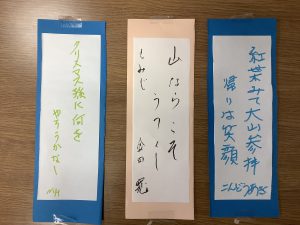 紅葉みて大山参拝
帰りは笑顔
こんどう
山ならこそ
うつくし
もみじ
金田
クリスマス
に何を
やろうかなー